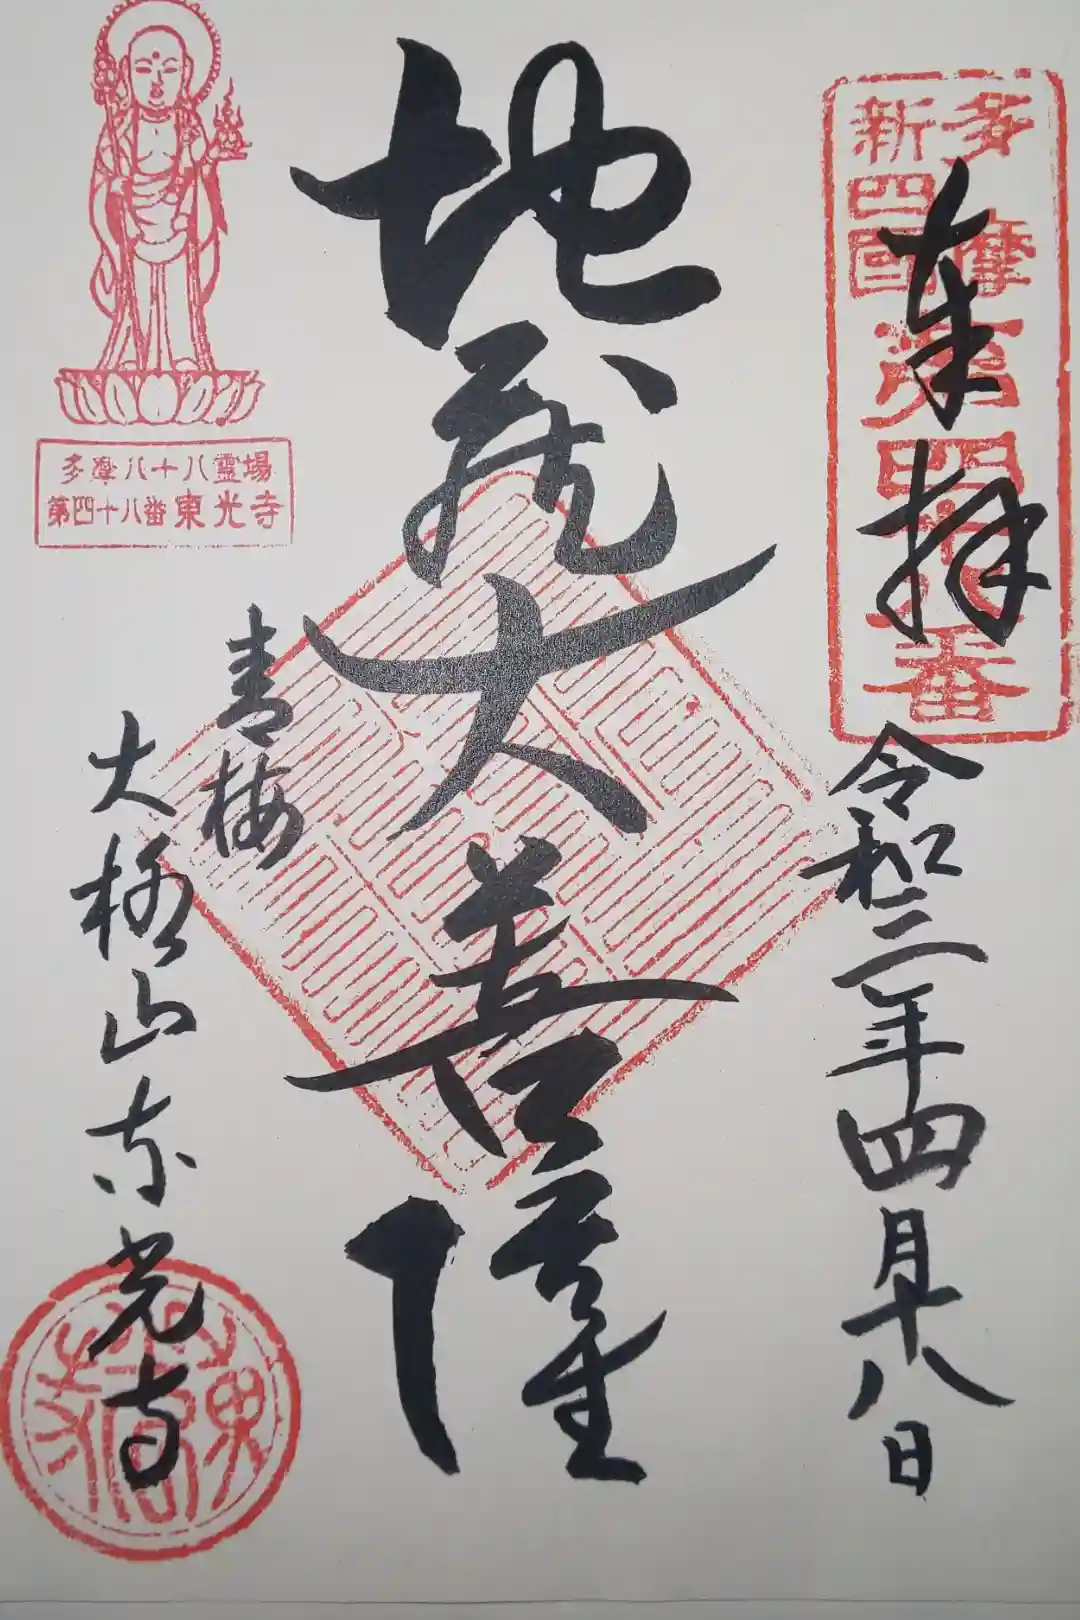 奉拝
多摩
新四國
第四十八番
令和三年四月十八日
地蔵大菩薩
青梅
大柳山東光寺
多摩八十八霊場
第四十八番東光寺